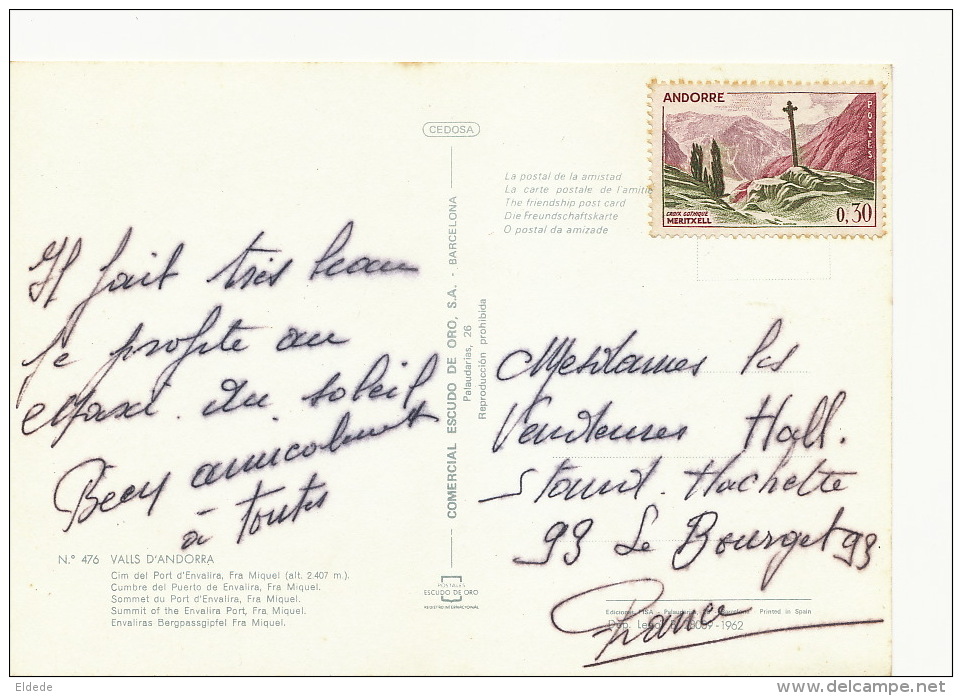 ANDORRE
POSTES
CROIX GOTHIQUE
MERITXELL
0,30
CEDOSA
La postal de la amistad
La carte postale de l'amitié
The friendship post card
Die Freundschaftskarte
O postal da amizade
Il fait très beau
je profite au
Maxi du soleil
Bien amicalement
à toutes
COMERCIAL ESCUDO DE ORO, S.A. - BARCELONA
Palaudarias, 26
Reproducción prohibida
Mesdames les
Vendeuses Hall.
Stand. Hachette
93 Le Bourget 93
France
N.° 476 VALLS D'ANDORRA
Cim del Port d'Envalira, Fra Miquel (alt. 2.407 m.).
Cumbre del Puerto de Envalira, Fra Miquel.
Sommet du Port d'Envalira, Fra Miquel.
Summit of the Envalira Port, Fra Miquel.
Envaliras Bergpassgipfel Fra Miquel.
POSTALES
ESCUDO DE ORO
REGISTRO INTERNACIONAL
Ediciones FISA - Palaudarias, Barcelona Printed in Spain
Dep. Legal B. 8089-1962
Eldede
www.delcampe.net